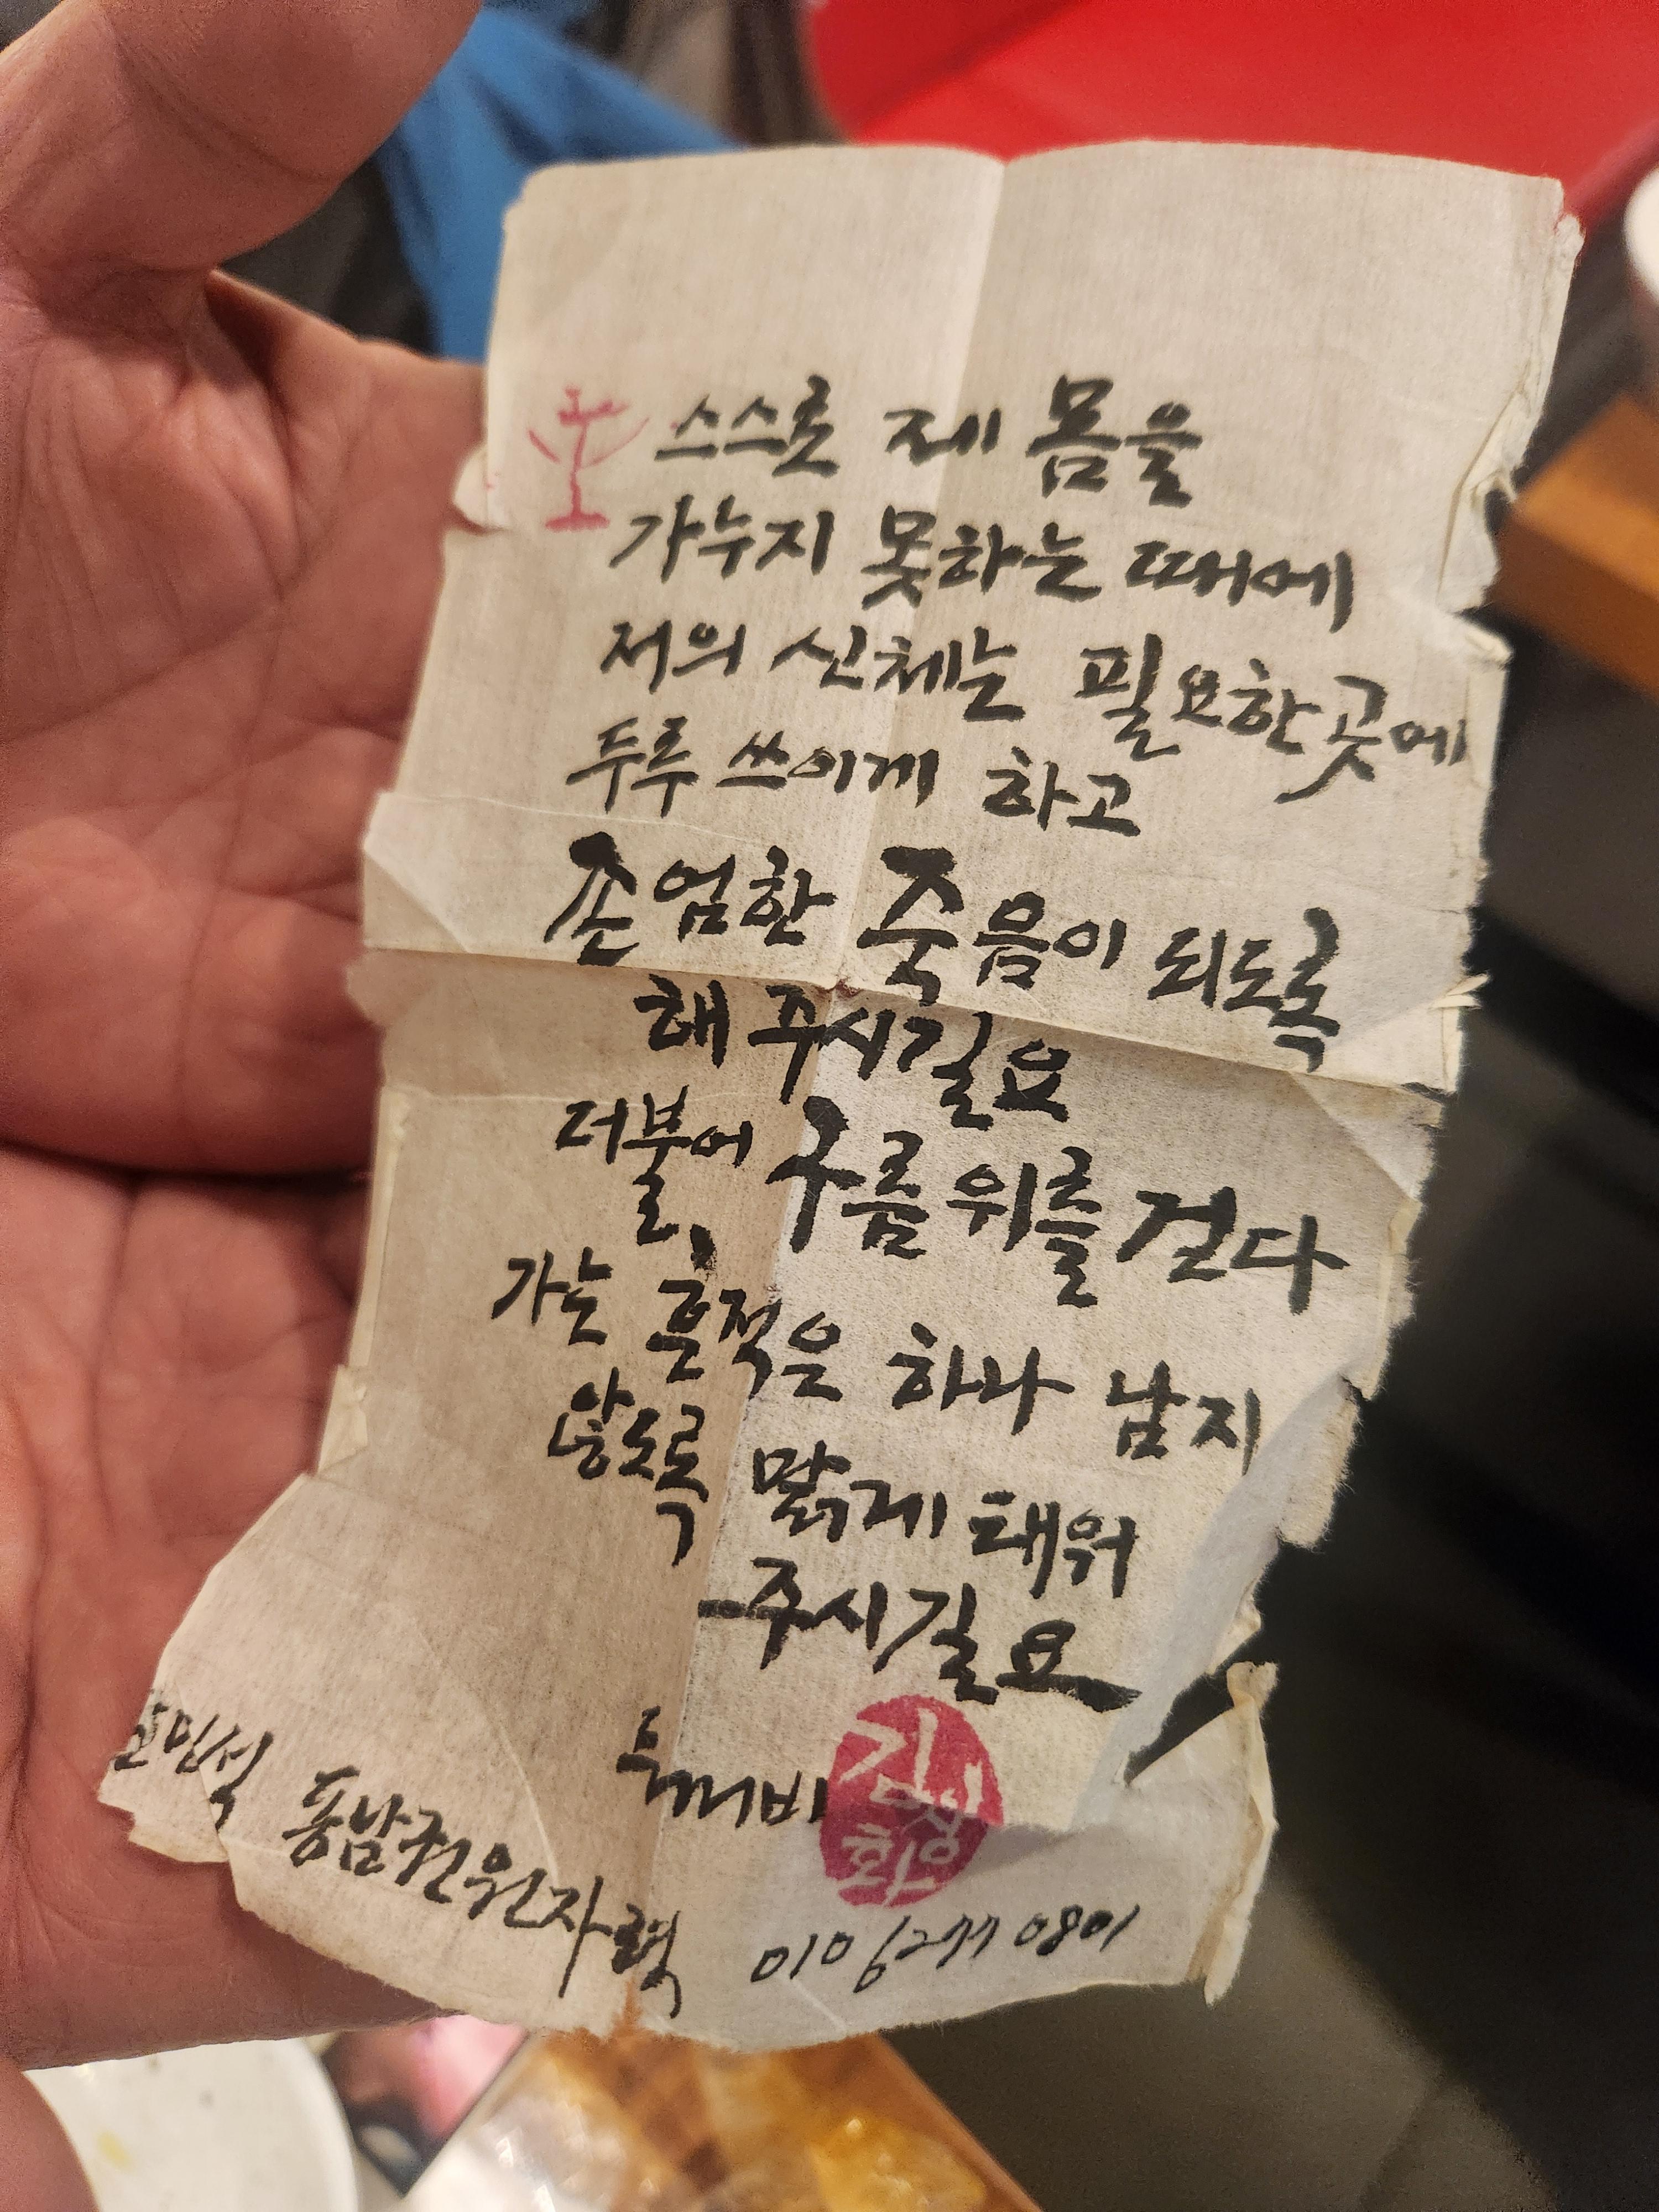 스스로 제 몸을
가누지 못하는 때에
저의 신체는 필요한 곳에
두루 쓰이게 하고
존엄한 죽음이 되도록
해 주시길요
더불어 구름 위를 걷다
가는 흔적은 하나 남지
않도록 맑게 태워
주시길요
두꺼비
민석 동남권원자력
010 6277 0801